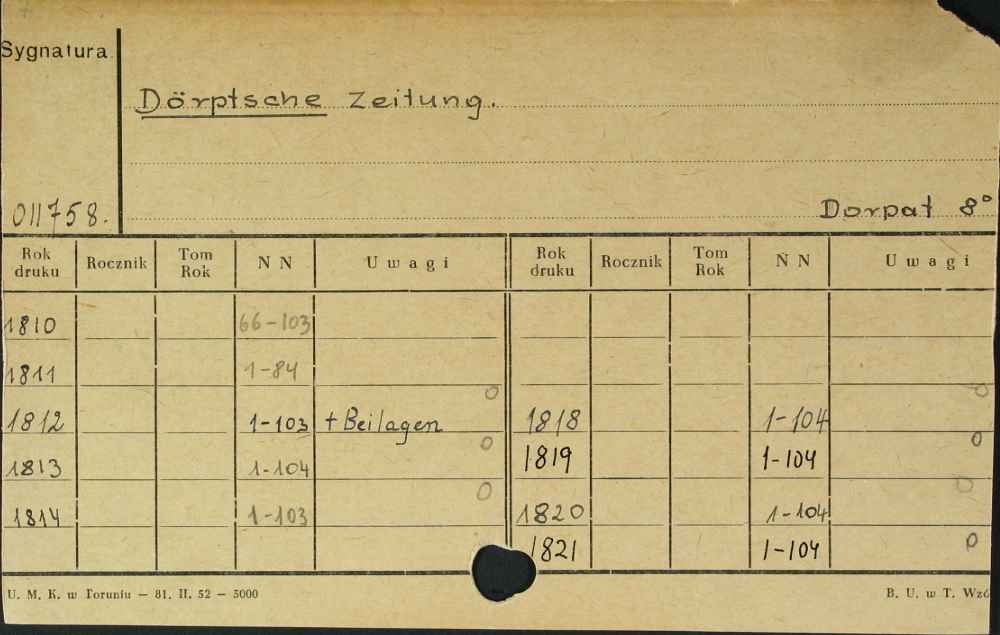 Sygnatura
Dörptsche Zeitung.
011758.
Dorpat 8°
Rok druku Rocznik Tom Rok N N Uwagi Rok druku Rocznik Tom Rok N N Uwagi
1810 66-103
1811 1-84
1812 1-103 + Beilagen 1818 1-104
1813 1-104 1819 1-104
1814 1-103 1820 1-104
1821 1-104
U. M. K. w Toruniu — 81. II. 52 — 5000 B. U. w T. Wzó